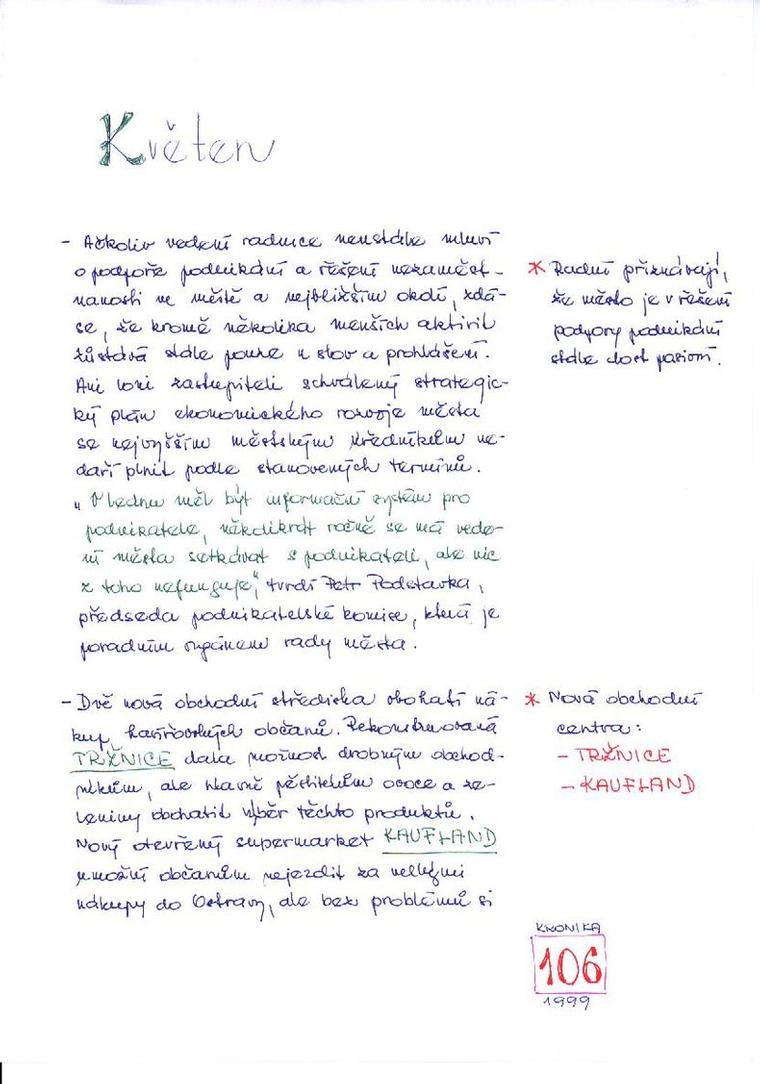 Květen
- Ačkoliv vedení radnice neustále mluví
o podpoře podnikání a řešení nezaměst-
nanosti ve městě a nejbližším okolí, zdá-
se, že kromě několika menších aktivit
zůstává stále pouze u slov a prohlášení.
Ani loni zastupiteli schválený strategic-
ký plán ekonomického rozvoje města
se nejvyšším městským úředníkům ne-
daří plnit podle stanovených termínů.
"V lednu měl být informační systém pro
podnikatele, několikrát ročně se má vede-
ní města setkávat s podnikateli, ale nic
z toho nefunguje," tvrdí Petr Podstavka,
předseda podnikatelské komise, která je
poradním orgánem rady města.
* Radní přiznávají,
že město je v řešení
podpory podnikání
stále dost pasivní.
- Dvě nová obchodní střediska obohatí ná-
kup havířovských občanů. Rekonstruovaná
TRŽNICE dala možnost drobným obchod-
níkům, ale hlavně pěstitelům ovoce a ze-
leniny obohatit výběr těchto produktů.
Nový otevřený supermarket KAUFLAND
umožní občanům nejezdit za velkými
nákupy do Ostravy, ale bez problémů si
* Nová obchodní
centra:
- TRŽNICE
- KAUFLAND
KRONIKA
106
1999